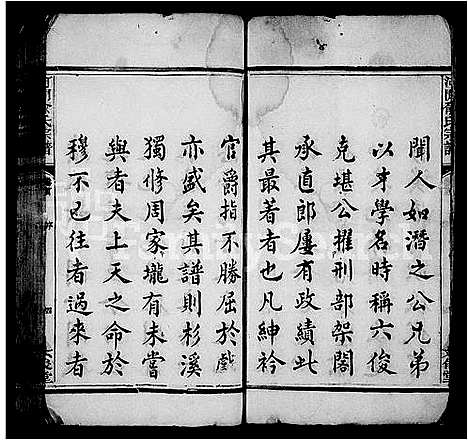 聞人如潛之公兄弟
以才學名時稱六俊
克堪公擢刑部架閣
承直郎屢有政績此
其最著者也凡紳衿
官爵指不勝屈於戲
亦盛矣其譜則杉溪
獨修周家壠有未嘗
與者夫上天之命於
穆不已往者過來者